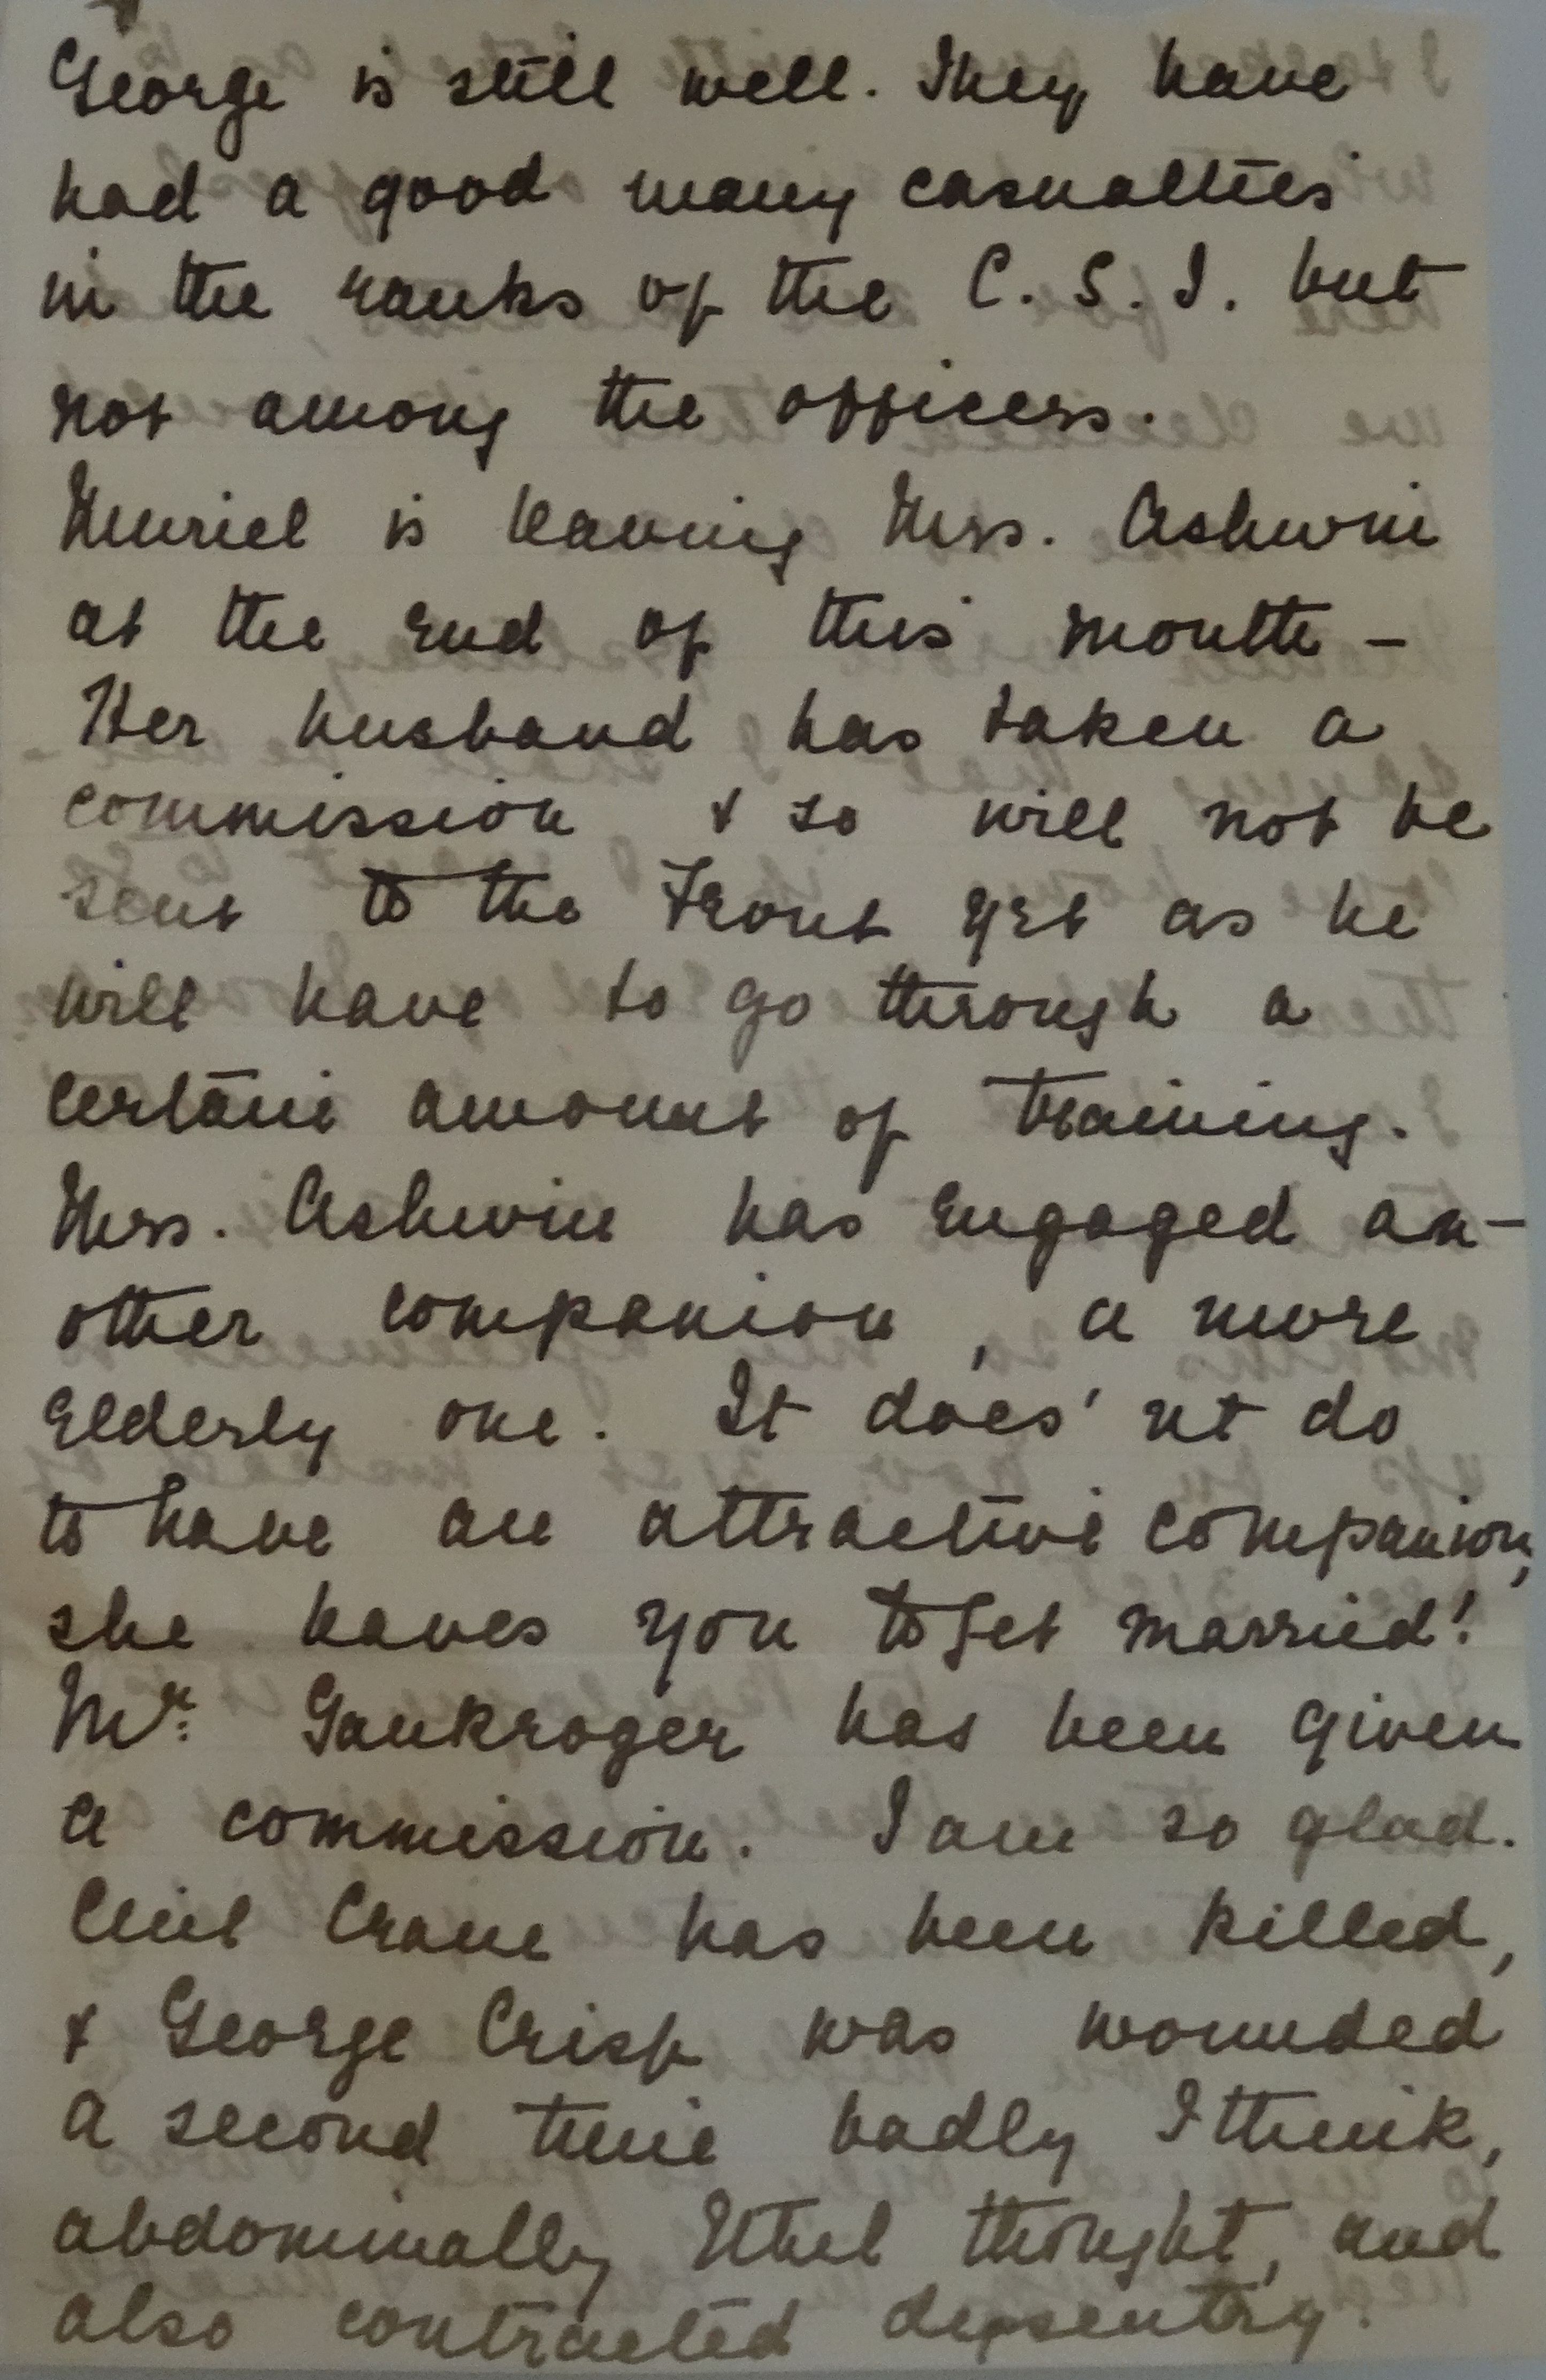 George is still well. They have
had a good many casualties
in the ranks of the C. S. I. but
not among the officers.
Muriel is leaving Mrs. Ashwin
at the end of this month –
Her husband has taken a
commission & so will not be
sent to the Front yet as he
will have to go through a
certain amount of training.
Mrs. Ashwin has engaged an-
other companion, a more
elderly one. It does'nt do
to have an attractive companion,
she leaves you to get married!
Mr. Gaukroger has been given
a commission. I am so glad.
Crane has been killed,
& George Crisp was wounded
a second time badly I think,
abdominally Ethel thought, and
also contracted dysentry.